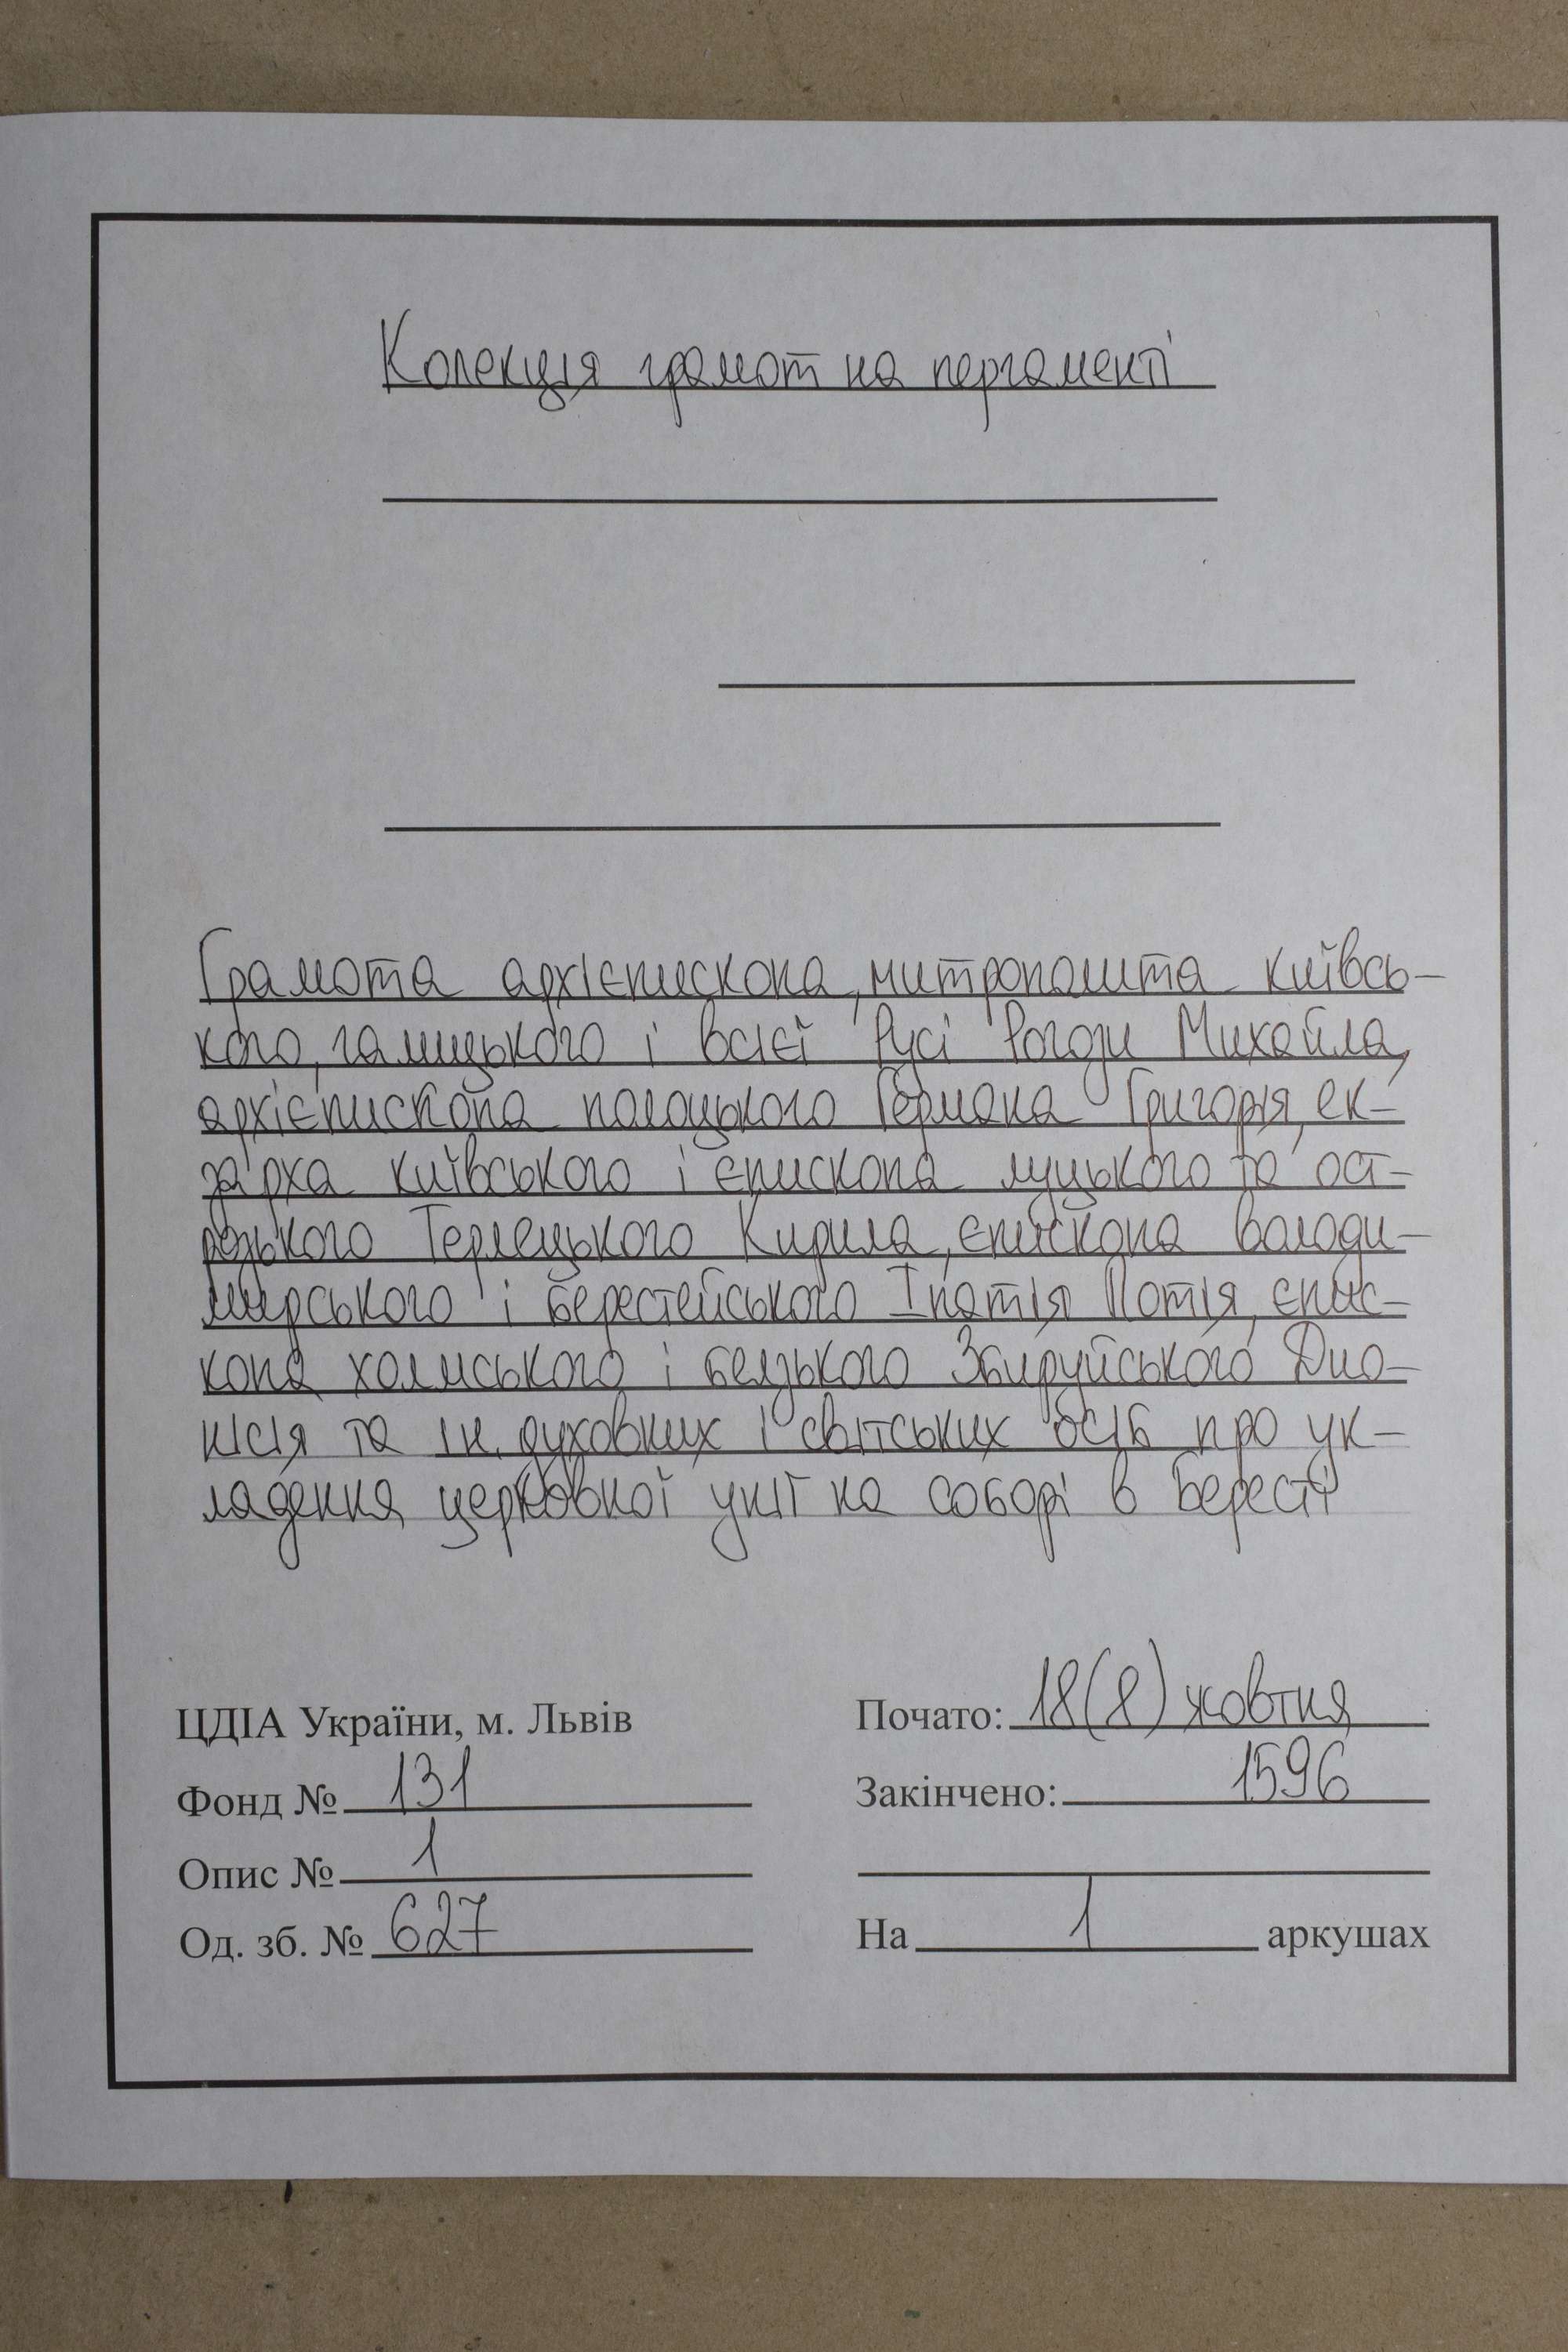 Колекція грамот на пергаменті
Грамота архієпископа, митрополита київсь-
кого, галицького і всієї Русі Рогози Михайла,
архієпископа полоцького Германа Григорія, ек-
зарха київського і єпископа луцького та ост-
розького Терлецького Кирила, єпископа володи-
мирського і берестейського Іпатія Потія, єпис-
копа холмського і белзького Збируйського Дио-
нісія та ін. духовних і світських осіб про ук-
ладення церковної унії на соборі в Бересті
ЦДІА України, м. Львів
Фонд № 131
Опис № 1
Од. зб. № 627
Почато: 18(8) жовтня
Закінчено: 1596
На 1 аркушах